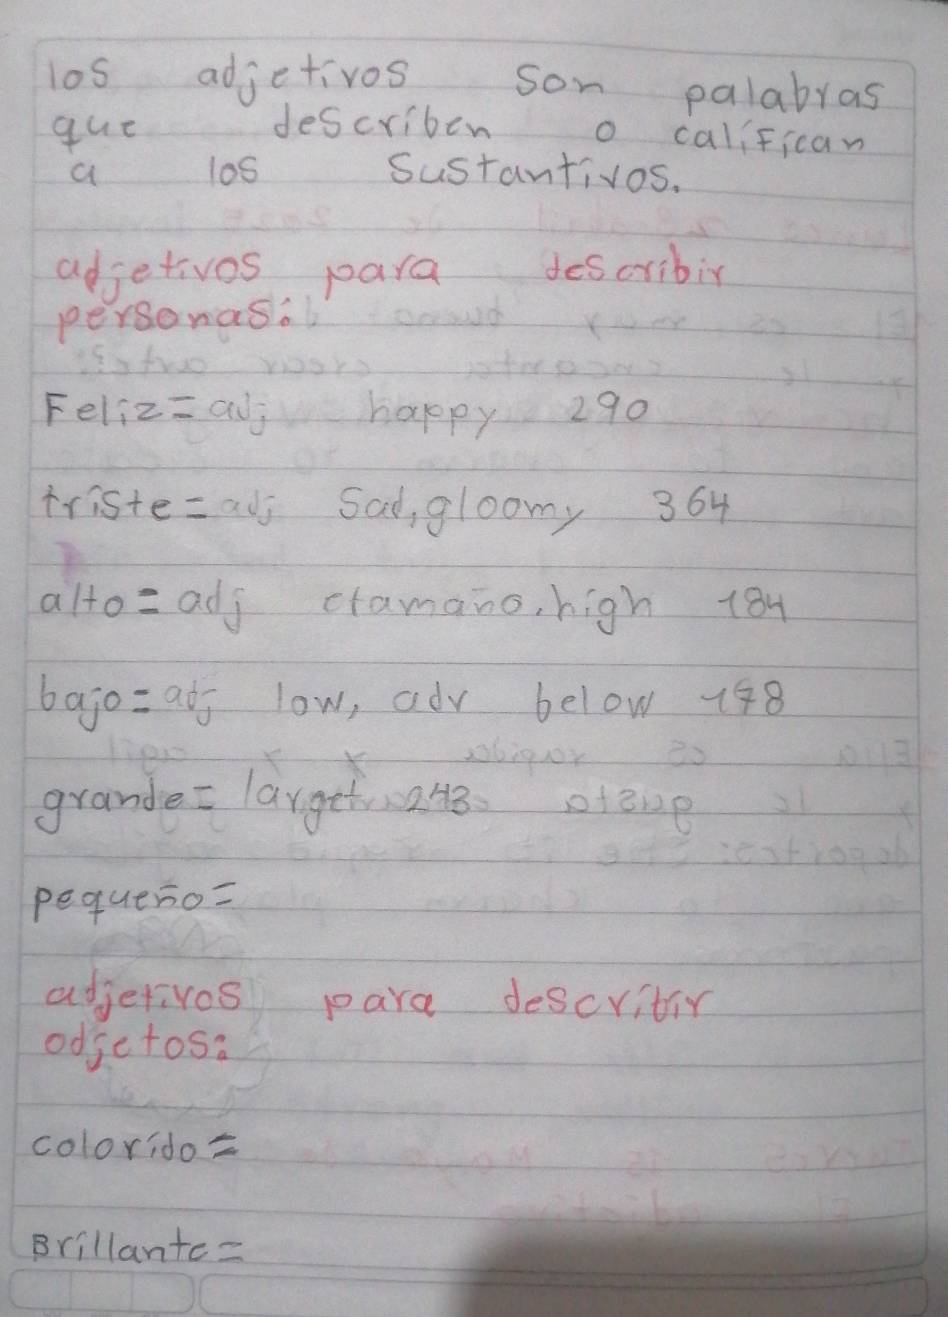 los adjetivos son palabras
que describen o califican
a los sustantivos.
adjetivos para describir
personas:
Feliz = adj happy 290
triste = adj Sad, gloomy 364
alto = adj ctamaño. high 184
bajo = adj low, adv below 198
grande = larget 243
pequeño =
adjetivos para describir
odjetos:
colorido =
Brillante =